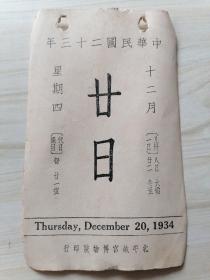 中華民國二十三年
十二月
廿日
星期四
Thursday, December 20, 1934
北平故宮博物院印行